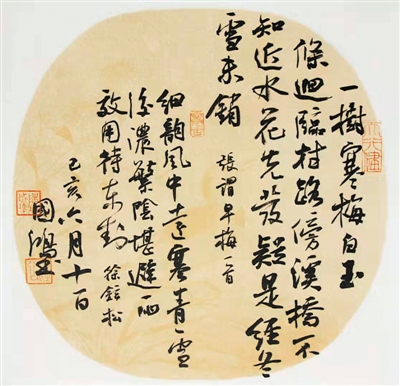 一樹寒梅白玉
條迥臨村路傍溪橋不
知近水花先發疑是經冬
雪未銷
張謂早梅一首
細韻風中遠寒青雪
後濃繁陰堪避雨
效用待東封 徐鉉松
己亥六月十一日
國鴻